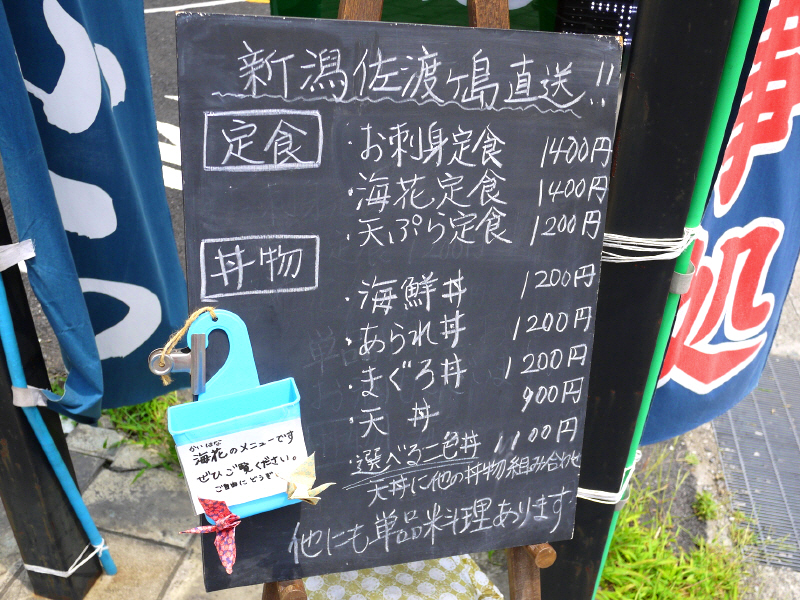 新潟佐渡ヶ島直送!!
定食
・お刺身定食 1400円
・海花定食 1400円
・天ぷら定食 1200円
丼物
・海鮮丼 1200円
・あられ丼 1200円
・まぐろ丼 1200円
・天丼 900円
・選べる二色丼 1100円
天丼に他の丼物組み合わせ
他にも単品料理あります
かいはな
海花のメニューです
ぜひご覧ください。
ご自由にどうぞ
処